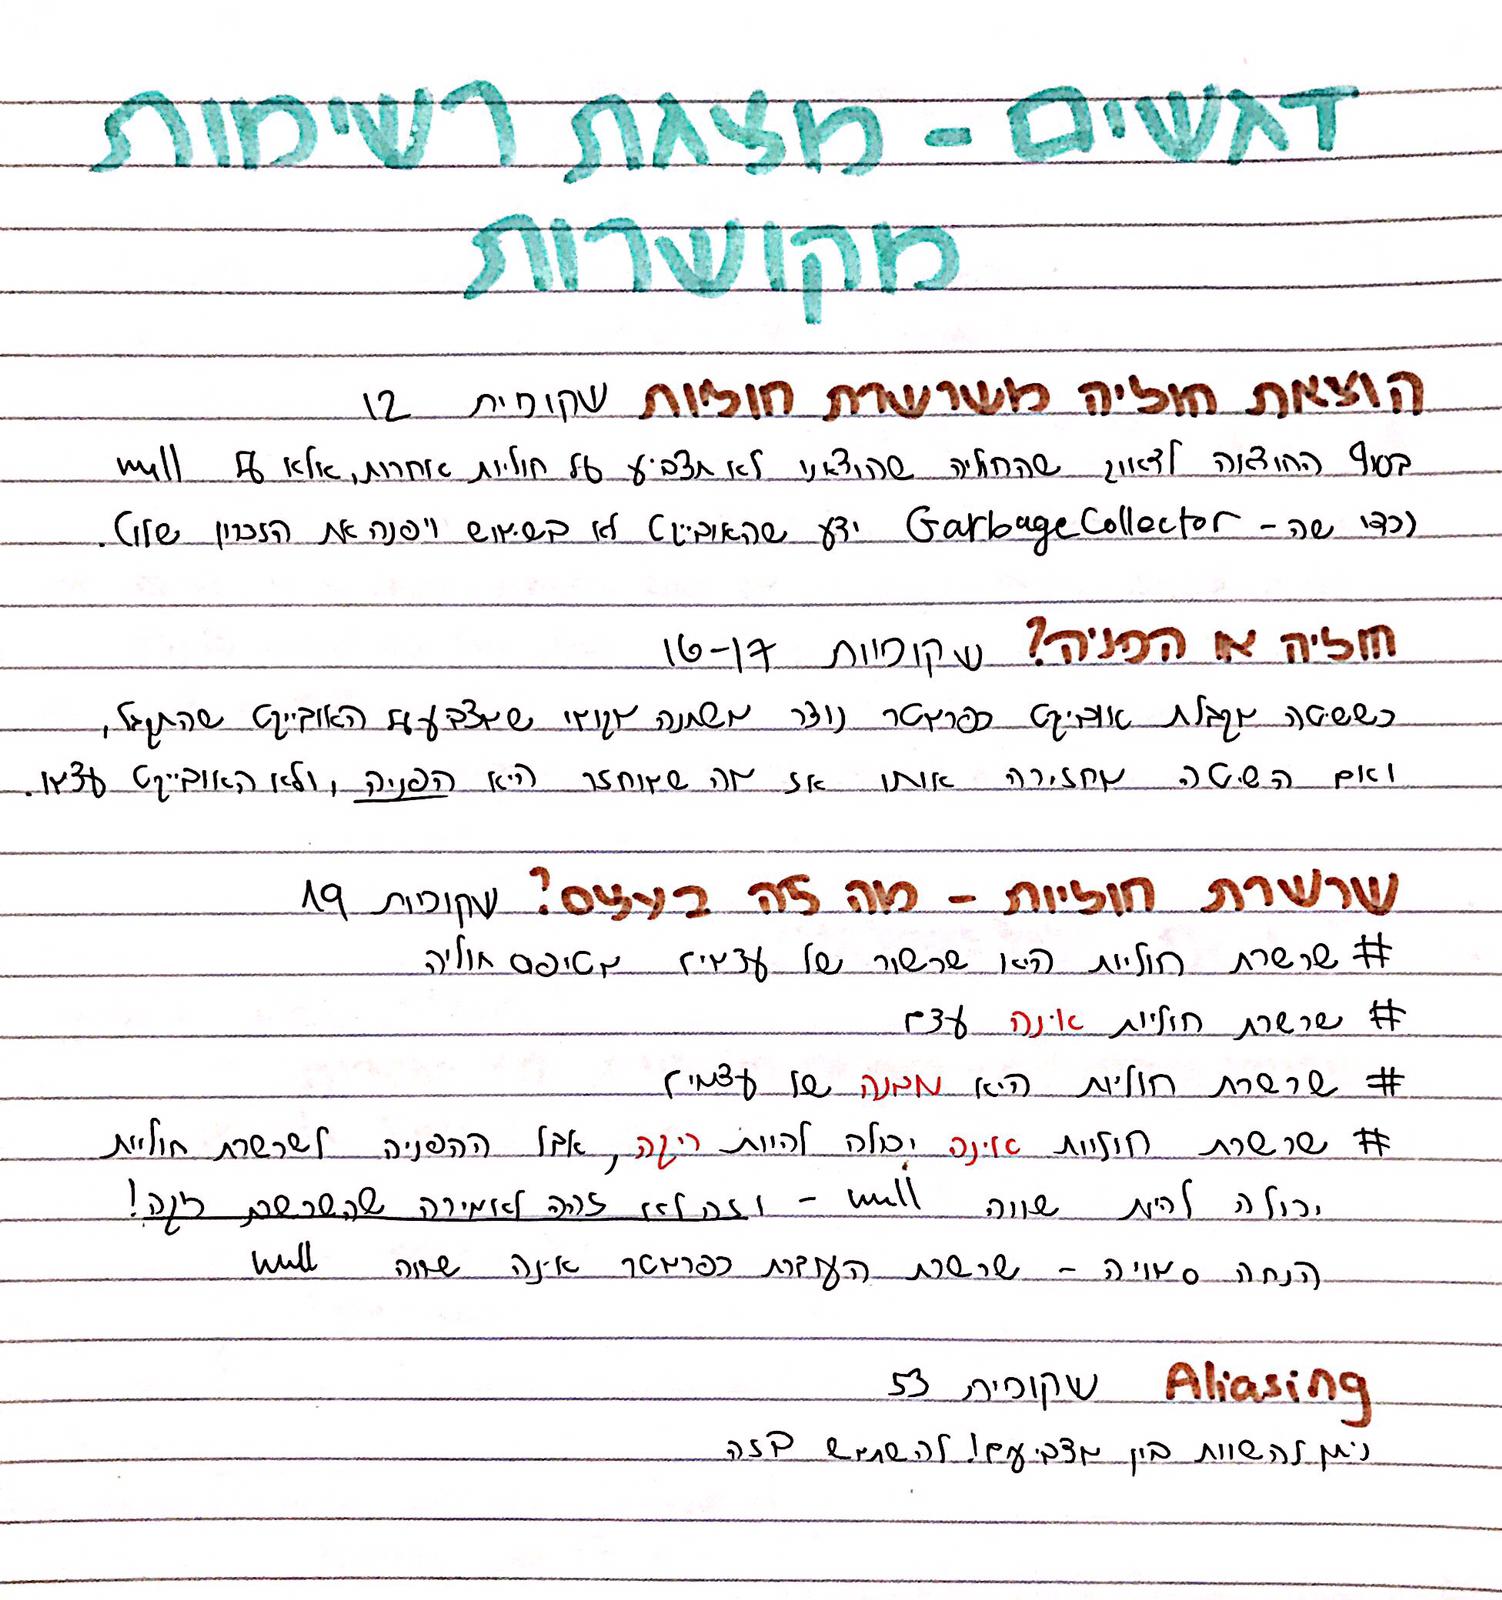 דגשים - מצגת רשימות
מקושרות
הוצאת חוליה משרשרת חוליות שקופית 12
בסוף ההוצאה לדאוג שהחוליה שהוצאנו לא תצביע על חוליות אחרות, אלא על null
(כדי שה- GarbageCollector ידע שהאובייקט לא בשימוש ויפנה את הזכרון שלו).
חוליה או הפניה? שקופיות 16-17
כששיטה מקבלת אובייקט כפרמטר נוצר משתנה מקומי שמצביע על האובייקט שהתקבל,
ואם השיטה מחזירה אותו אז מה שמוחזר היא הפניה, ולא האובייקט עצמו.
שרשרת חוליות - מה זה בעצם? שקופית 19
# שרשרת חוליות היא שרשור של עצמים מטיפוס חוליה
# שרשרת חוליות אינה עצם
# שרשרת חוליות היא מבנה של עצמים
# שרשרת חוליות אינה יכולה להיות ריקה, אבל ההפניה לשרשרת חוליות
יכולה להיות שווה null - וזה לא זהה לאמירה שהשרשרת ריקה!
הנחה סמויה - שרשרת העוברת כפרמטר אינה שווה null
Aliasing שקופית 53
ניתן להשוות בין מצביעים! להשתמש בזה